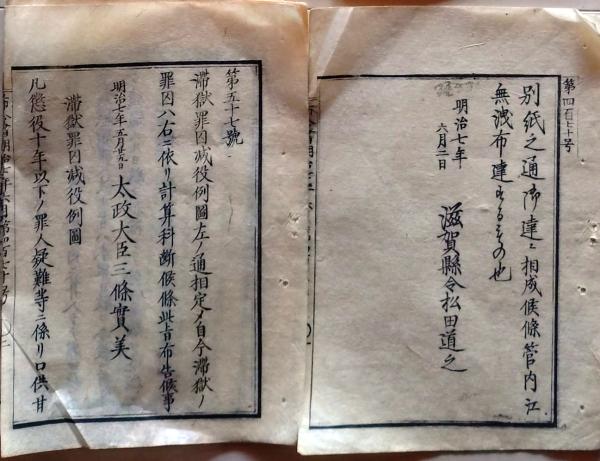 第四百七十号
別紙之通御達ニ相成候條管内江
無洩布達するもの也
明治七年
六月二日
滋賀縣令松田道之
第五十七號
滞獄罪囚減役例圖左ノ通相定メ自今滞獄ノ
罪囚ハ右ニ依リ計算科断候條此旨布告候事
明治七年五月廿九日
太政大臣三條實美
滞獄罪囚減役例圖
凡懲役十年以下ノ罪人疑難等ニ係リ口供甘